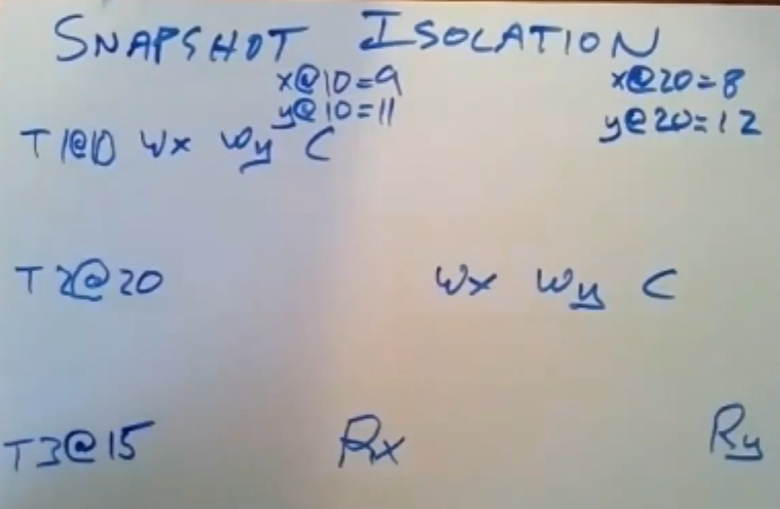 SNAPSHOT ISOLATION
x@10=9 x@20=8
y@10=11 y@20=12
T1@10 Wx Wy C
T2@20 Wx Wy C
T3@15 Rx Ry